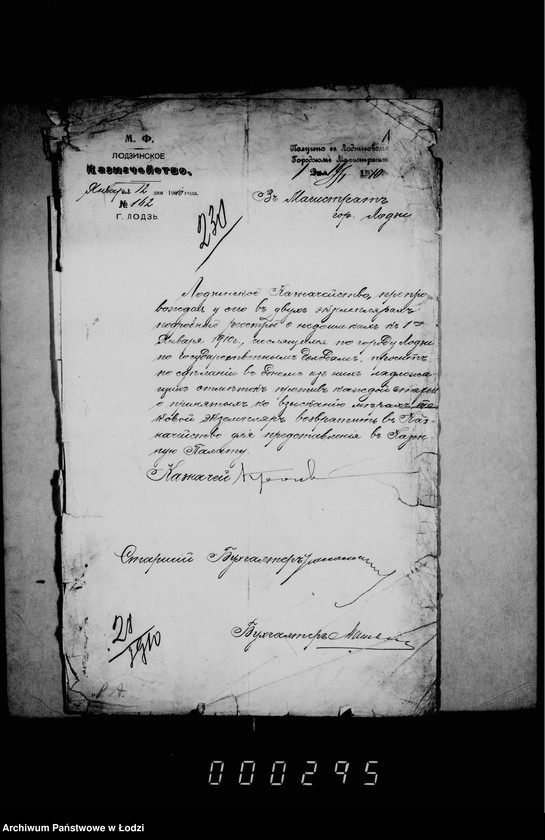 М. Ф.
ЛОДЗИНСКОЕ
Казначейство.
Января 12 дня 1910 года.
№ 162
Г. ЛОДЗЬ.
1
Получено в Лодзинском
Городском Магистрате
1910
230
Въ Магистратъ
гор. Лодзи
Лодзинское Казначейство, препро-
вождая у сего въ двухъ экземплярахъ
подробный реестръ о недоимкахъ къ 1го
Января 1910г., числящихся по городу Лодзи
по государственнымъ доходамъ, проситъ
по сдѣланіи въ одномъ изъ нихъ надлежа-
щихъ отмѣтокъ противъ каждой статьи
о принятыхъ ко взысканію мѣрахъ, та-
ковой экземпляръ возвратить въ Каз-
начейство для представленія въ Казен-
ную Палату.
Казначей
Старшій Бухгалтеръ
Бухгалтеръ
28
1910
000295
Archiwum Państwowe w Łodzi